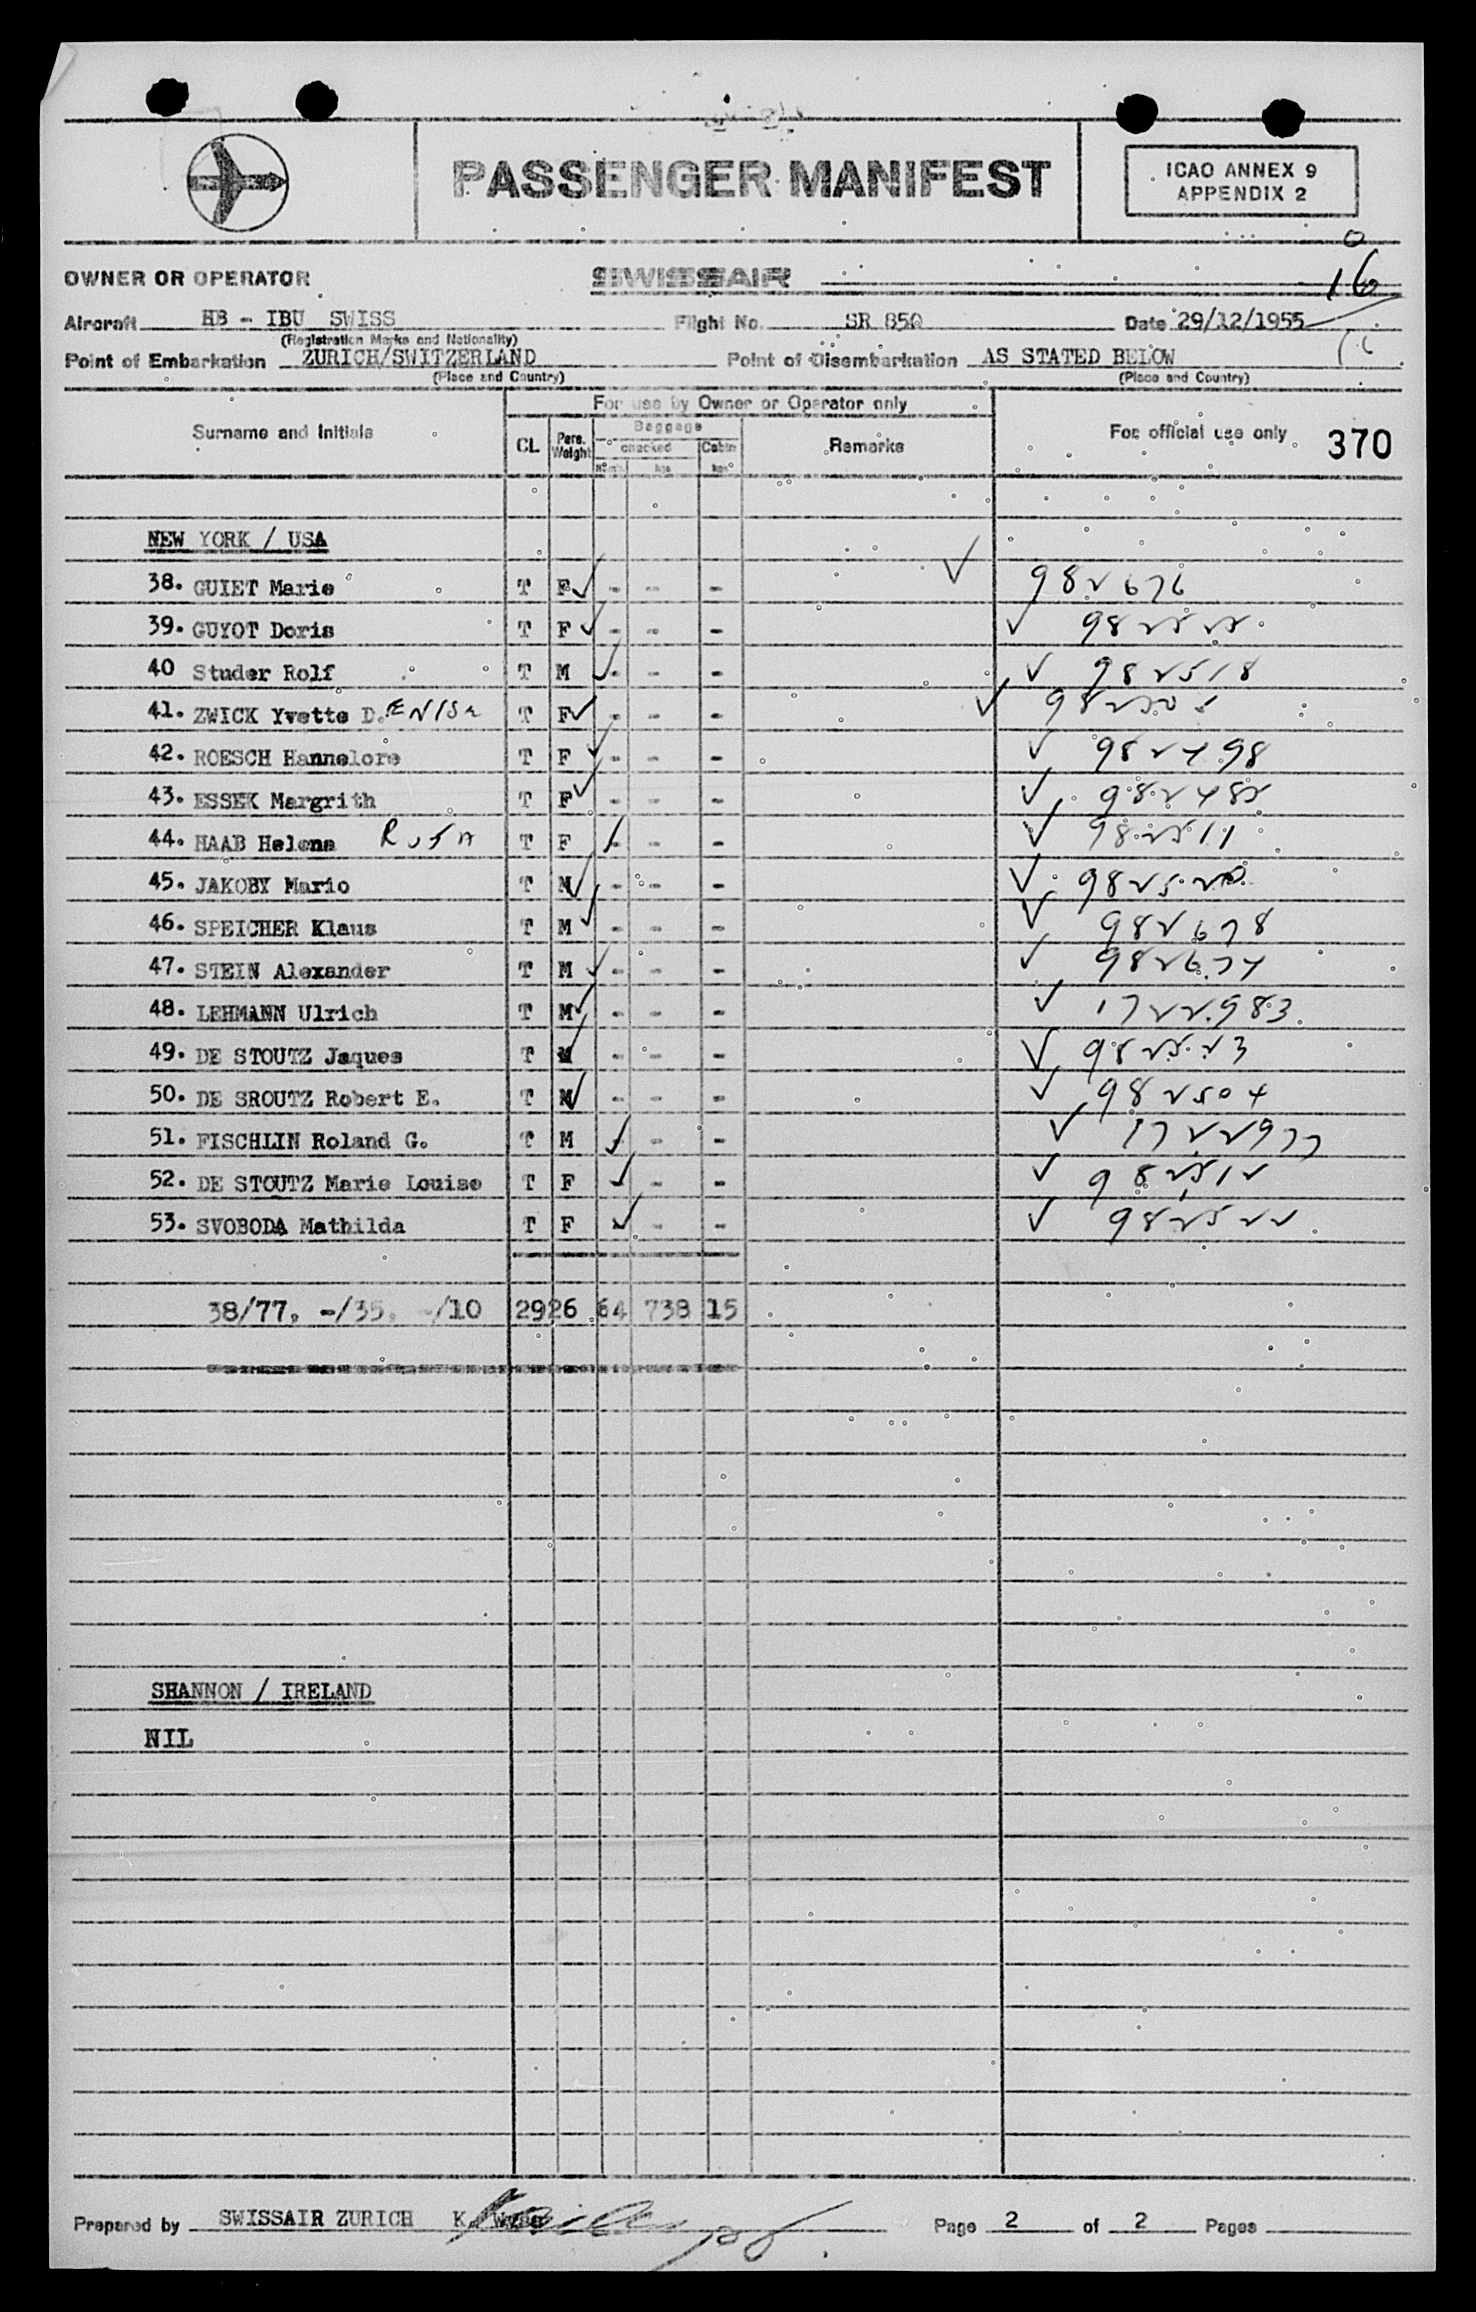 PASSENGER MANIFEST
ICAO ANNEX 9
APPENDIX 2
OWNER OR OPERATOR SWISSAIR
16
Aircraft HB - IBU SWISS Flight No. SR 850 Date 29/12/1955
(Registration Marks and Nationality)
Point of Embarkation ZURICH/SWITZERLAND Point of Disembarkation AS STATED BELOW
(Place and Country) (Place and Country)
For use by Owner or Operator only
Surname and Initials CL Pers. Weight Baggage checked Cabin Remarks For official use only 370
NEW YORK / USA
38. GUIET Marie T F - - - 982676
39. GUYOT Doris T F - - - 982525
40 Studer Rolf T M - - - 982518
41. ZWICK Yvette D. ENISE T F - - -
42. ROESCH Hannelore T F - - - 982498
43. ESSEK Margrith T F - - - 982482
44. HAAB Helene ROSA T F - - - 982511
45. JAKOBY Mario T M - - - 982520
46. SPEICHER Klaus T M - - - 982678
47. STEIN Alexander T M - - - 982674
48. LEHMANN Ulrich T M - - - 1722983
49. DE STOUTZ Jaques T M - - - 982523
50. DE SROUTZ Robert E. T M - - - 982504
51. FISCHLIN Roland G. T M - - - 1722977
52. DE STOUTZ Marie Louise T F - - - 982512
53. SVOBODA Mathilda T F - - - 982522
38/77. -/35. -/10 2926 64 738 15
SHANNON / IRELAND
NIL
Prepared by SWISSAIR ZURICH K. Page 2 of 2 Pages